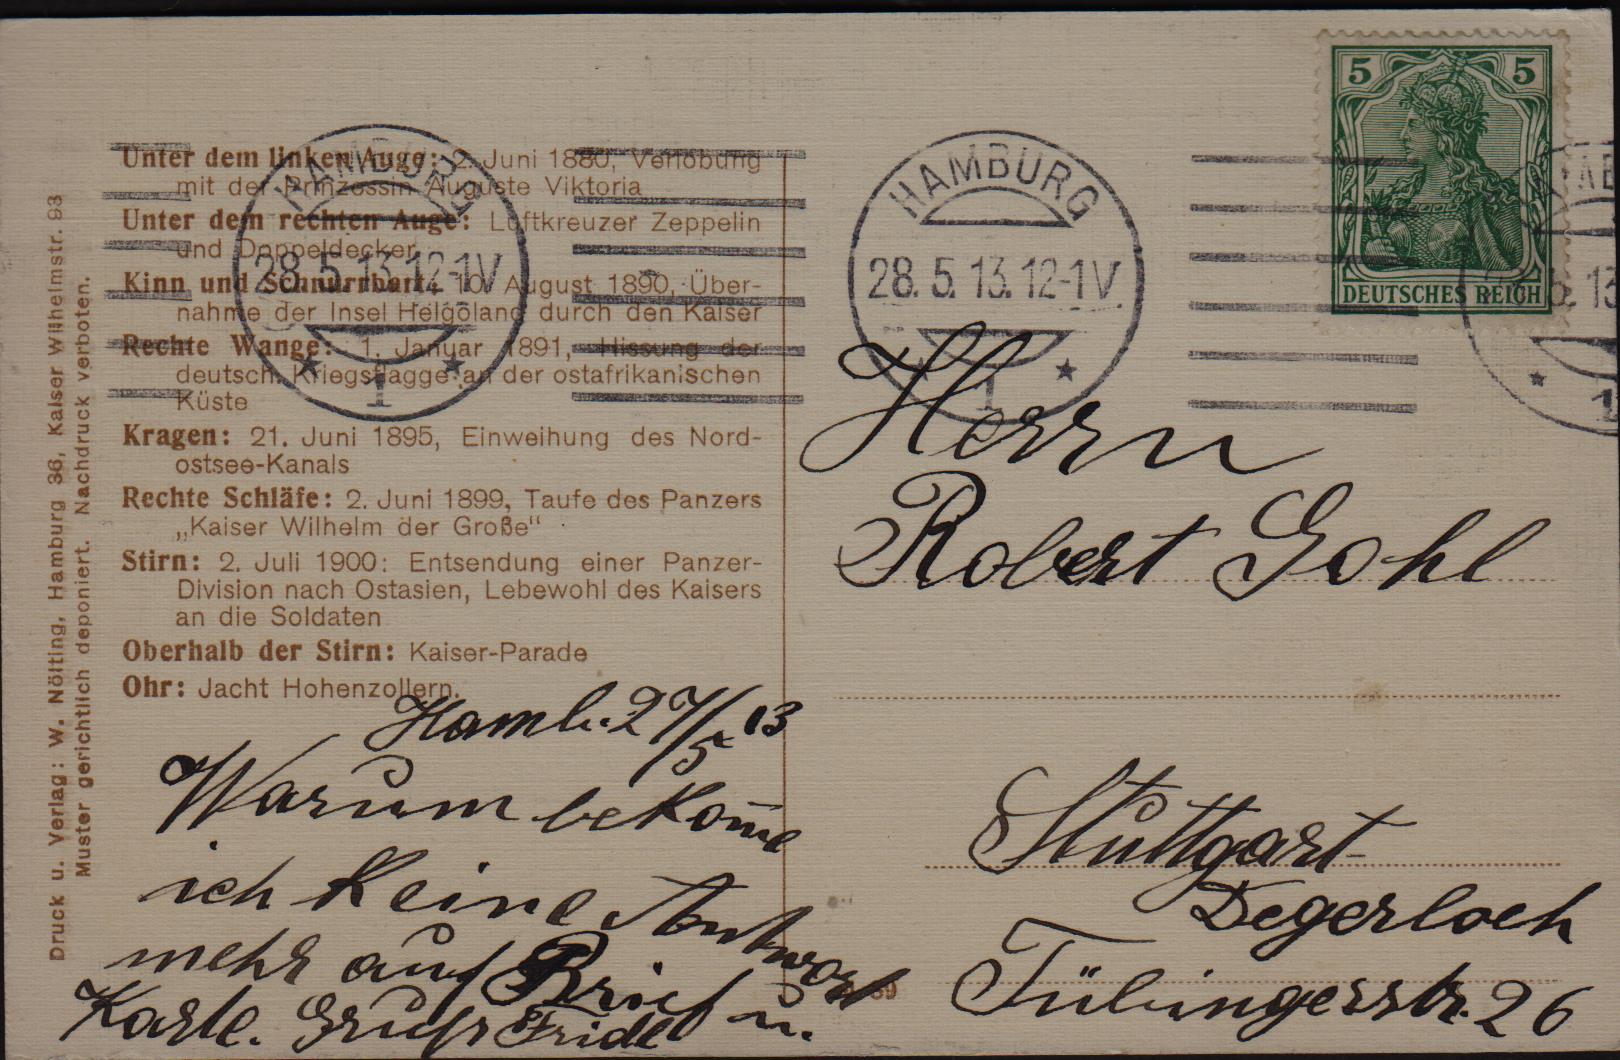 Unter dem linken Auge: 2. Juni 1880, Verlobung
mit der Prinzessin Auguste Viktoria
Unter dem rechten Auge: Luftkreuzer Zeppelin
und Doppeldecker
Kinn und Schnurrbart: 10. August 1890, Über-
nahme der Insel Helgoland durch den Kaiser
Rechte Wange: 1. Januar 1891, Hissung der
deutsch. Kriegsflagge an der ostafrikanischen
Küste
Kragen: 21. Juni 1895, Einweihung des Nord-
ostsee-Kanals
Rechte Schläfe: 2. Juni 1899, Taufe des Panzers
„Kaiser Wilhelm der Große“
Stirn: 2. Juli 1900: Entsendung einer Panzer-
Division nach Ostasien, Lebewohl des Kaisers
an die Soldaten
Oberhalb der Stirn: Kaiser-Parade
Ohr: Jacht Hohenzollern.
Druck u. Verlag: W. Nölting, Hamburg 36, Kaiser Wilhelmstr. 93
Muster gerichtlich deponiert. Nachdruck verboten.
Hamb. 27/5 13
Warum bekom̄e
ich keine Antwort
mehr auf Brief u.
Karte. Gruß Fridel
HAMBURG
28.5.13.12-1V
1
HAMBURG
28.5.13.12-1V.
1
5 5
DEUTSCHES REICH
Herrn
Robert Gohl
Stuttgart-
Degerloch
Tübingerstr. 26